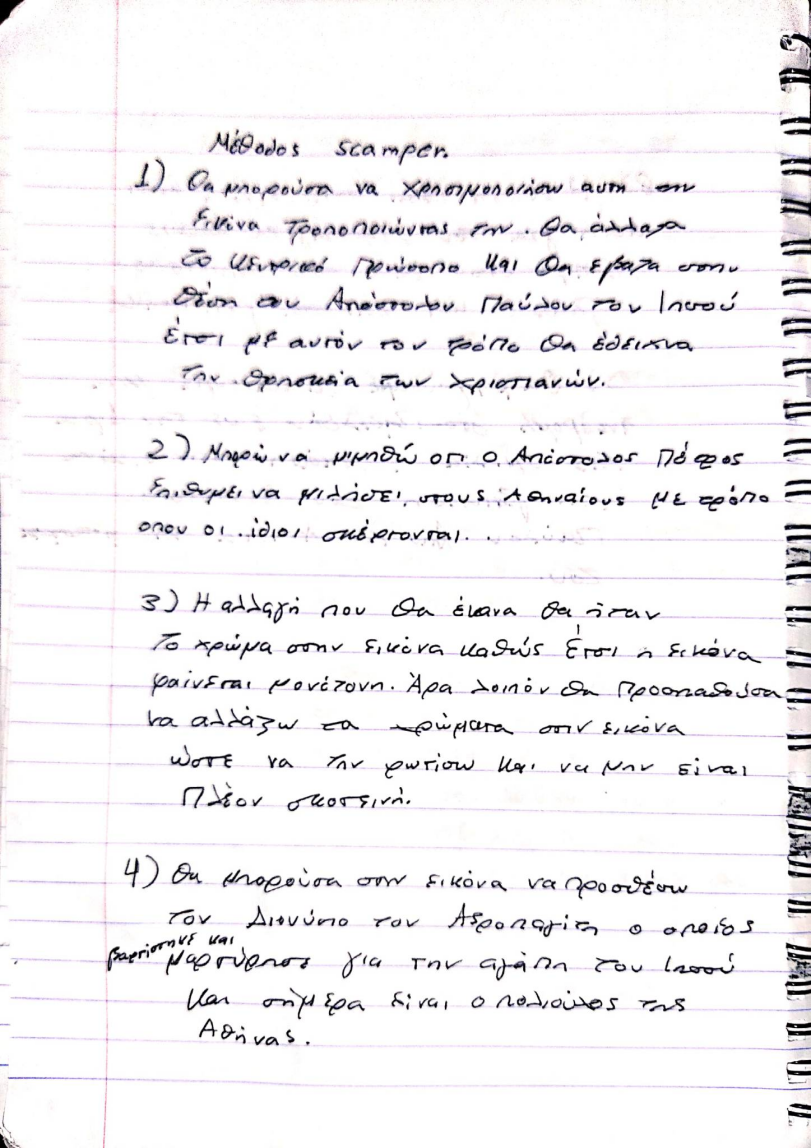 Μέθοδος scamper.
1) Θα μπορούσα να χρησιμοποιήσω αυτη την
εικόνα τροποποιώντας την. Θα άλλαζα
το κεντρικό πρόσωπο και θα έβαζα στην
θέση του Απόστολου Παύλου τον Ιησού
έτσι με αυτόν τον τρόπο θα έδειχνα
την θρησκεία των χριστιανών.
2) Μπορώ να μιμηθώ οτι ο Απόστολος Πέτρος
επιθυμεί να μιλήσει στους Αθηναίους με τρόπο
οπου οι ίδιοι σκέφτονται.
3) Η αλλαγή που θα έκανα θα ήταν
το χρώμα στην εικόνα καθώς έτσι η εικόνα
φαίνεται μονότονη. Άρα λοιπόν θα προσπαθούσα
να αλλάξω τα χρώματα στην εικόνα
ώστε να την φωτίσω και να μην είναι
πλέον σκοτεινή.
4) Θα μπορούσα στην εικόνα να προσθέσω
τον Διονύσιο τον Αεροπαγίτη ο οποίος
βαφτίστηκε και μαρτύρησε για την αγάπη του Ιησού
και σήμερα είναι ο πολιούχος της
Αθήνας.